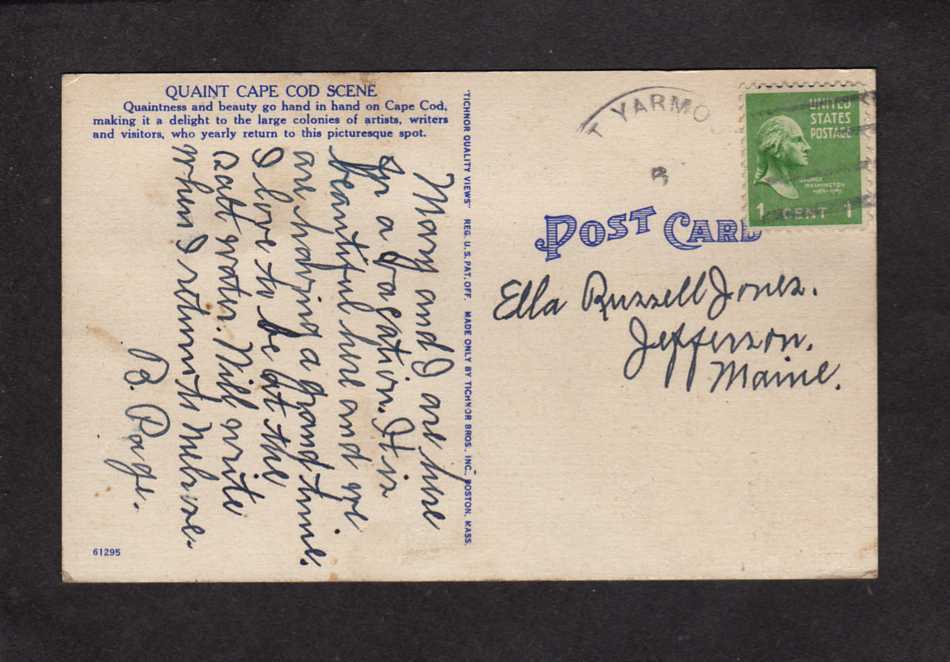 QUAINT CAPE COD SCENE
Quaintness and beauty go hand in hand on Cape Cod,
making it a delight to the large colonies of artists, writers
and visitors, who yearly return to this picturesque spot.
Mary and I are here
for a vacation. It is
beautiful here and we
are having a grand time.
I love to be at the
salt water. Will write
when I return to Melrose.
B. Page.
61295
"TICHNOR QUALITY VIEWS" REG. U. S. PAT. OFF. MADE ONLY BY TICHNOR BROS., INC., BOSTON, MASS.
T YARMO
UNITED
STATES
POSTAGE
GEORGE
WASHINGTON
1 CENT 1
POST CARD
Ella Russell Jones.
Jefferson.
Maine.